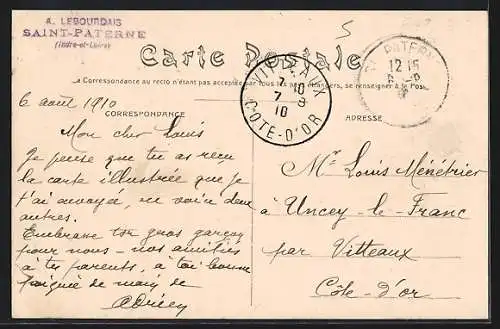 A. LEBOURDAIS
SAINT-PATERNE
(Indre-et-Loire)
5
Carte Postale
La Correspondance au recto n'étant pas acceptée par tous les pays étrangers, se renseigner à la Poste
VITTEAUX
7 10
7 - 8
10
COTE-D'OR
ST PATERNE
12 15
6 - 8
CORRESPONDANCE
ADRESSE
6 août 1910
Mon cher Louis
Je pense que tu as reçu
la carte illustrée que je
t'ai envoyée, en voici deux
autres.
Embrasse ton gros garçon
pour nous - nos amitiés
à tes parents, à toi bonne
poignée de main de
Mr Louis Ménétrier
à Uncey-le-Franc
par Vitteaux
Côte-d'or